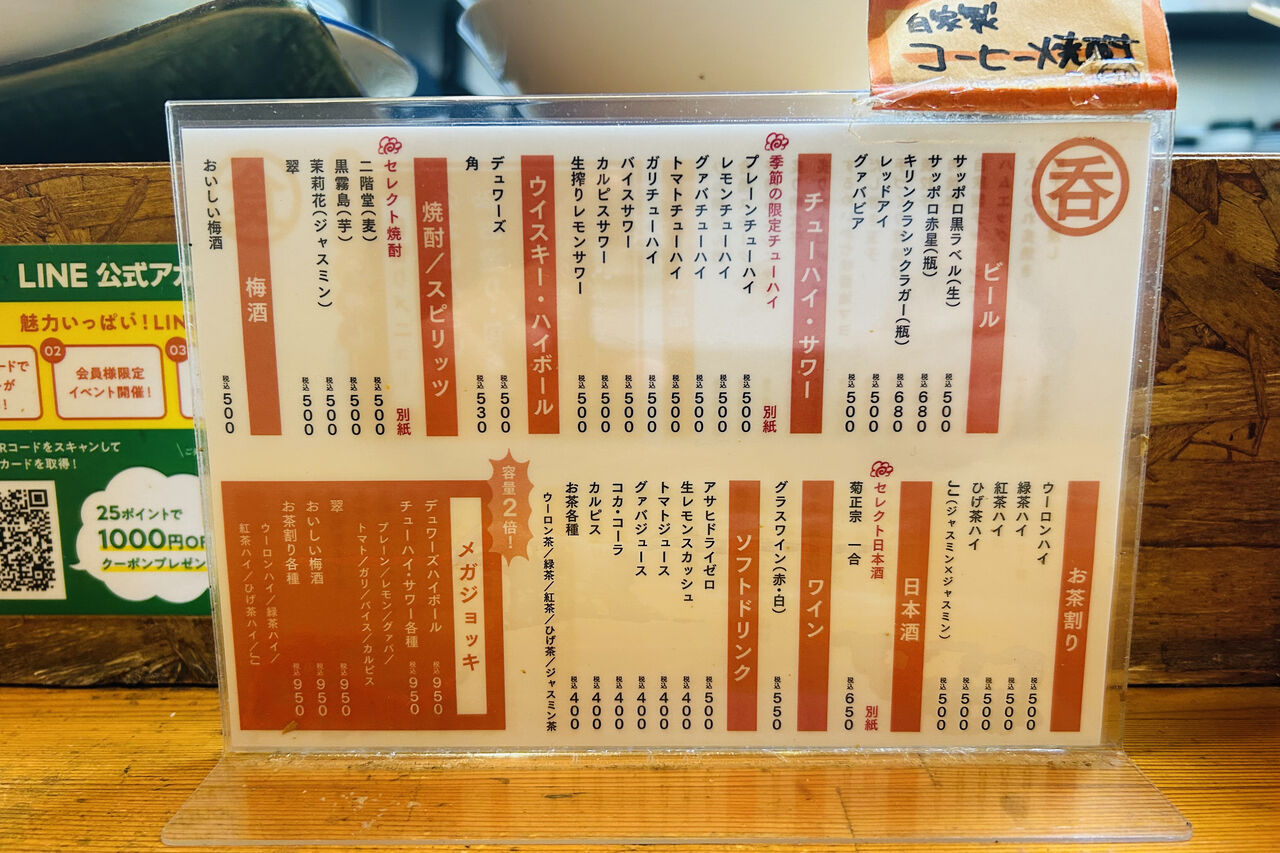 自家製
コーヒー焼酎
呑
ビール
サッポロ黒ラベル(生) 税込500
サッポロ赤星(瓶) 税込680
キリンクラシックラガー(瓶) 税込680
レッドアイ 税込500
グァバビア 税込500
チューハイ・サワー
季節の限定チューハイ 別紙
プレーンチューハイ 税込500
レモンチューハイ 税込500
グァバチューハイ 税込500
トマトチューハイ 税込500
ガリチューハイ 税込500
バイスサワー 税込500
カルピスサワー 税込500
生搾りレモンサワー 税込500
ウイスキー・ハイボール
デュワーズ 税込500
角 税込530
焼酎/スピリッツ
セレクト焼酎 別紙
二階堂(麦) 税込500
黒霧島(芋) 税込500
茉莉花(ジャスミン) 税込500
翠 税込500
梅酒
おいしい梅酒 税込500
お茶割り
ウーロンハイ 税込500
緑茶ハイ 税込500
紅茶ハイ 税込500
ひげ茶ハイ 税込500
(ジャスミン×ジャスミン) 税込500
日本酒
セレクト日本酒 別紙
菊正宗 一合 税込650
ワイン
グラスワイン(赤・白) 税込550
ソフトドリンク
アサヒドライゼロ 税込500
生レモンスカッシュ 税込400
トマトジュース 税込400
グァバジュース 税込400
コカ・コーラ 税込400
カルピス 税込400
お茶各種 税込400
ウーロン茶/緑茶/紅茶/ひげ茶/ジャスミン茶
容量2倍!
メガジョッキ
デュワーズハイボール 税込950
チューハイ・サワー各種 税込950
プレーン/レモン/グァバ/
トマト/ガリ/バイス/カルピス
翠 税込950
おいしい梅酒 税込950
お茶割り各種 税込950
ウーロンハイ/緑茶ハイ/
紅茶ハイ/ひげ茶ハイ/
LINE 公式アカ
魅力いっぱい!LIN
ードで
が
!
02
会員様限定
イベント開催!
03
Rコードをスキャンして
カードを取得!
25ポイントで
1000円OF
クーポンプレゼン